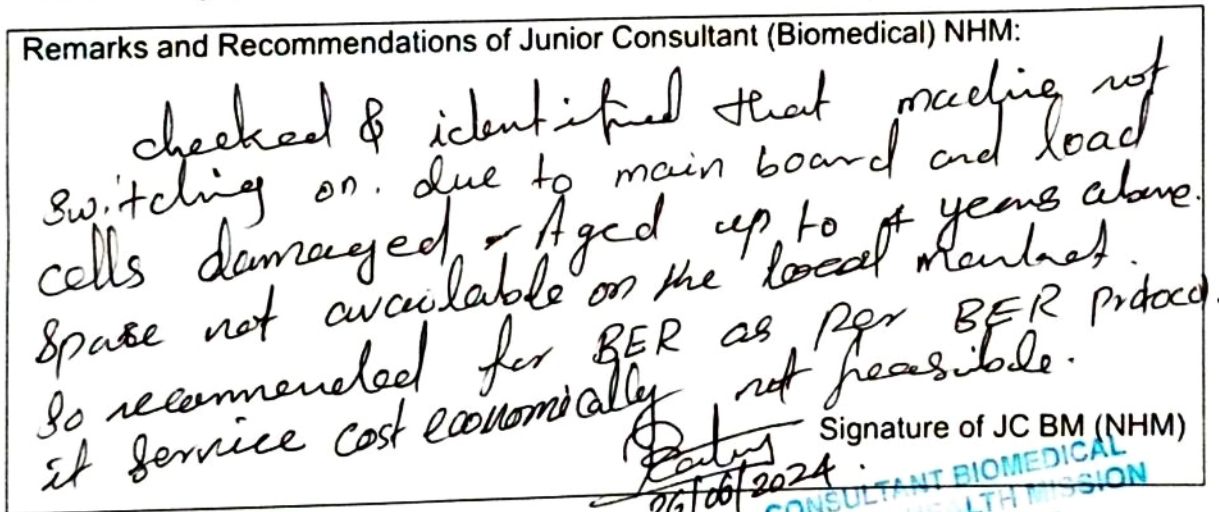 Remarks and Recommendations of Junior Consultant (Biomedical) NHM:
checked & identified that machine not
switching on. due to main board and load
cells damaged - Aged up to 4 years above.
Spare not available on the local market.
So recommended for BER as per BER protocol.
it service cost economically not feasible.
Signature of JC BM (NHM)
06/06/2024.
CONSULTANT BIOMEDICAL
HEALTH MISSION